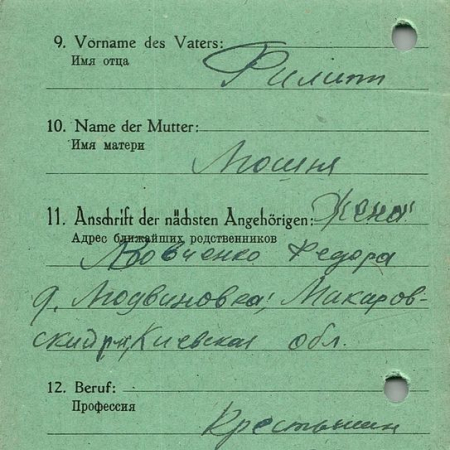 9. Vorname des Vaters:
Имя отца
Филипп
10. Name der Mutter:
Имя матери
11. Anschrift der nächsten Angehörigen: Жена
Адрес ближайших родственников
Вовченко Федора
д. Людвиновка, Макаров-
ский р-н, Киевская обл.
12. Beruf:
Профессия
Крестьянин